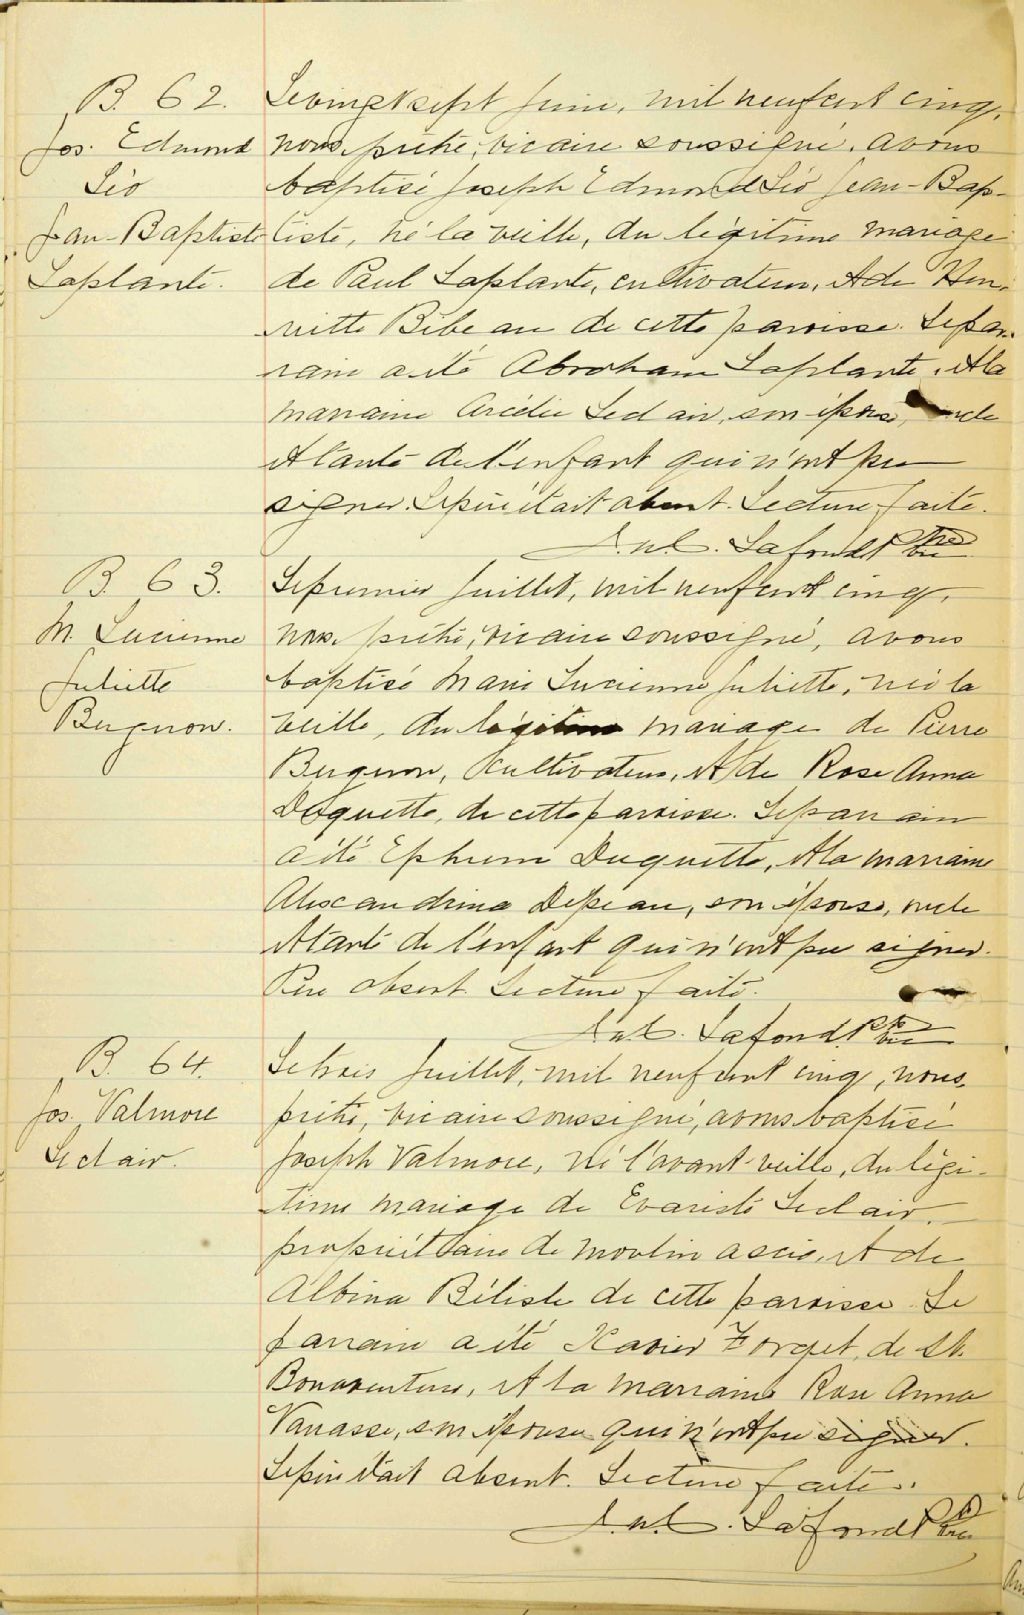 B. 62.
Jos. Edmond
Léo
Jean-Baptiste
Laplante.
Le vingt sept Juin, mil neuf cent cinq,
nous, prêtre, vicaire soussigné, avons
baptisé Joseph Edmond Léo Jean-Bap-
tiste, né la veille, du légitime mariage
de Paul Laplante, cultivateur, et de Hen-
riette Bibeau de cette paroisse. Le par-
rain a été Abraham Laplante, et la
marraine Arzélie Leclair, son épouse, oncle
et tante de l'enfant qui n'ont pu
signer. Le père était absent. Lecture faite.
Lafond Ptre vic
B. 63.
M. Lucienne
Juliette
Bergeron.
Le premier Juillet, mil neuf cent cinq,
nous, prêtre, vicaire soussigné, avons
baptisé Marie Lucienne Juliette, née la
veille, du légitime mariage de Pierre
Bergeron, cultivateur, et de Rose Anna
Duquette, de cette paroisse. Le parrain
a été Ephrem Duquette, et la marraine
Alexandrina Depeau, son épouse, oncle
et tante de l'enfant qui n'ont pu signer.
Père absent. Lecture faite.
Lafond. Ptre vic
B. 64.
Jos. Valmore
Leclair.
Le trois Juillet, mil neuf cent cinq, nous,
prêtre, vicaire soussigné, avons baptisé
Joseph Valmore, né l'avant veille, du légi-
time mariage de Evariste Leclair,
propriétaire de moulin a scie, et de
Albina Bélisle de cette paroisse. Le
parrain a été Xavier Forget, de St.
Bonaventure, et la marraine Rose Anna
Vanasse, son épouse qui n'ont pu signer.
Le père était absent. Lecture faite.
Lafond Ptre